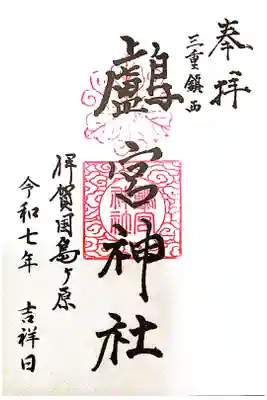 奉拝
三重鎮西
鵜宮神社
伊賀国島ヶ原
令和七年 吉祥日